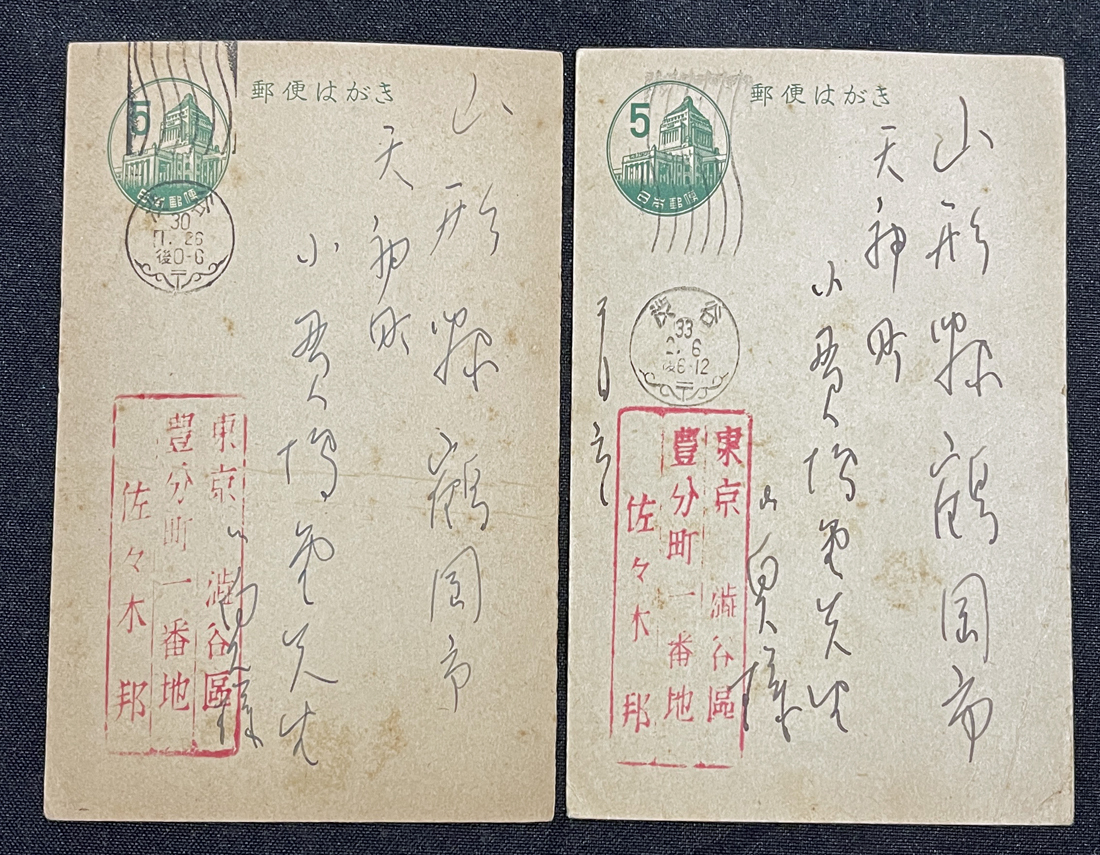 郵便はがき
5
日本郵便
30
11. 26
後0-6
山形縣鶴岡市
天神町
先生
様
東京 澁谷區
豊分町一番地
佐々木 邦
郵便はがき
5
日本郵便
渋谷
33
2. 6
後6-12
山形縣鶴岡市
天神町
先生
様
東京 澁谷區
豊分町一番地
佐々木 邦